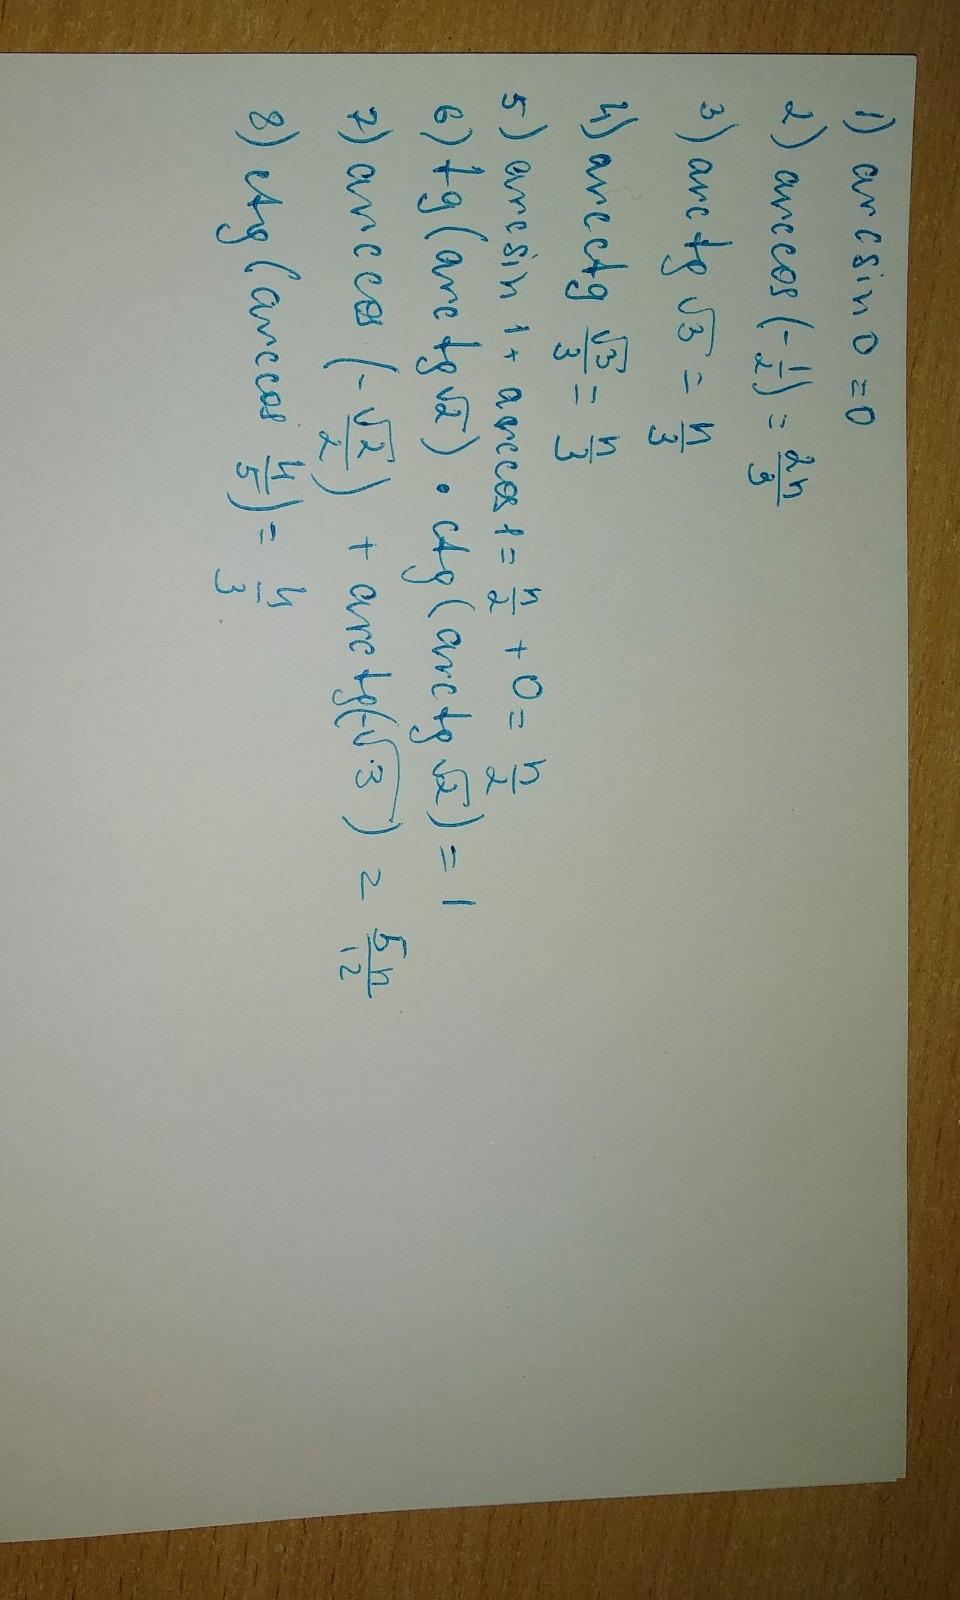 1) arcsin 0 = 0
2) arccos (-1/2) = 2π/3
3) arctg √3 = π/3
4) arcctg √3/3 = π/3
5) arcsin 1 + arccos 1 = π/2 + 0 = π/2
6) tg (arctg √2) · ctg (arctg √2) = 1
7) arccos (-√2/2) + arctg(-√3) = 5π/12
8) ctg (arccos 4/5) = 4/3